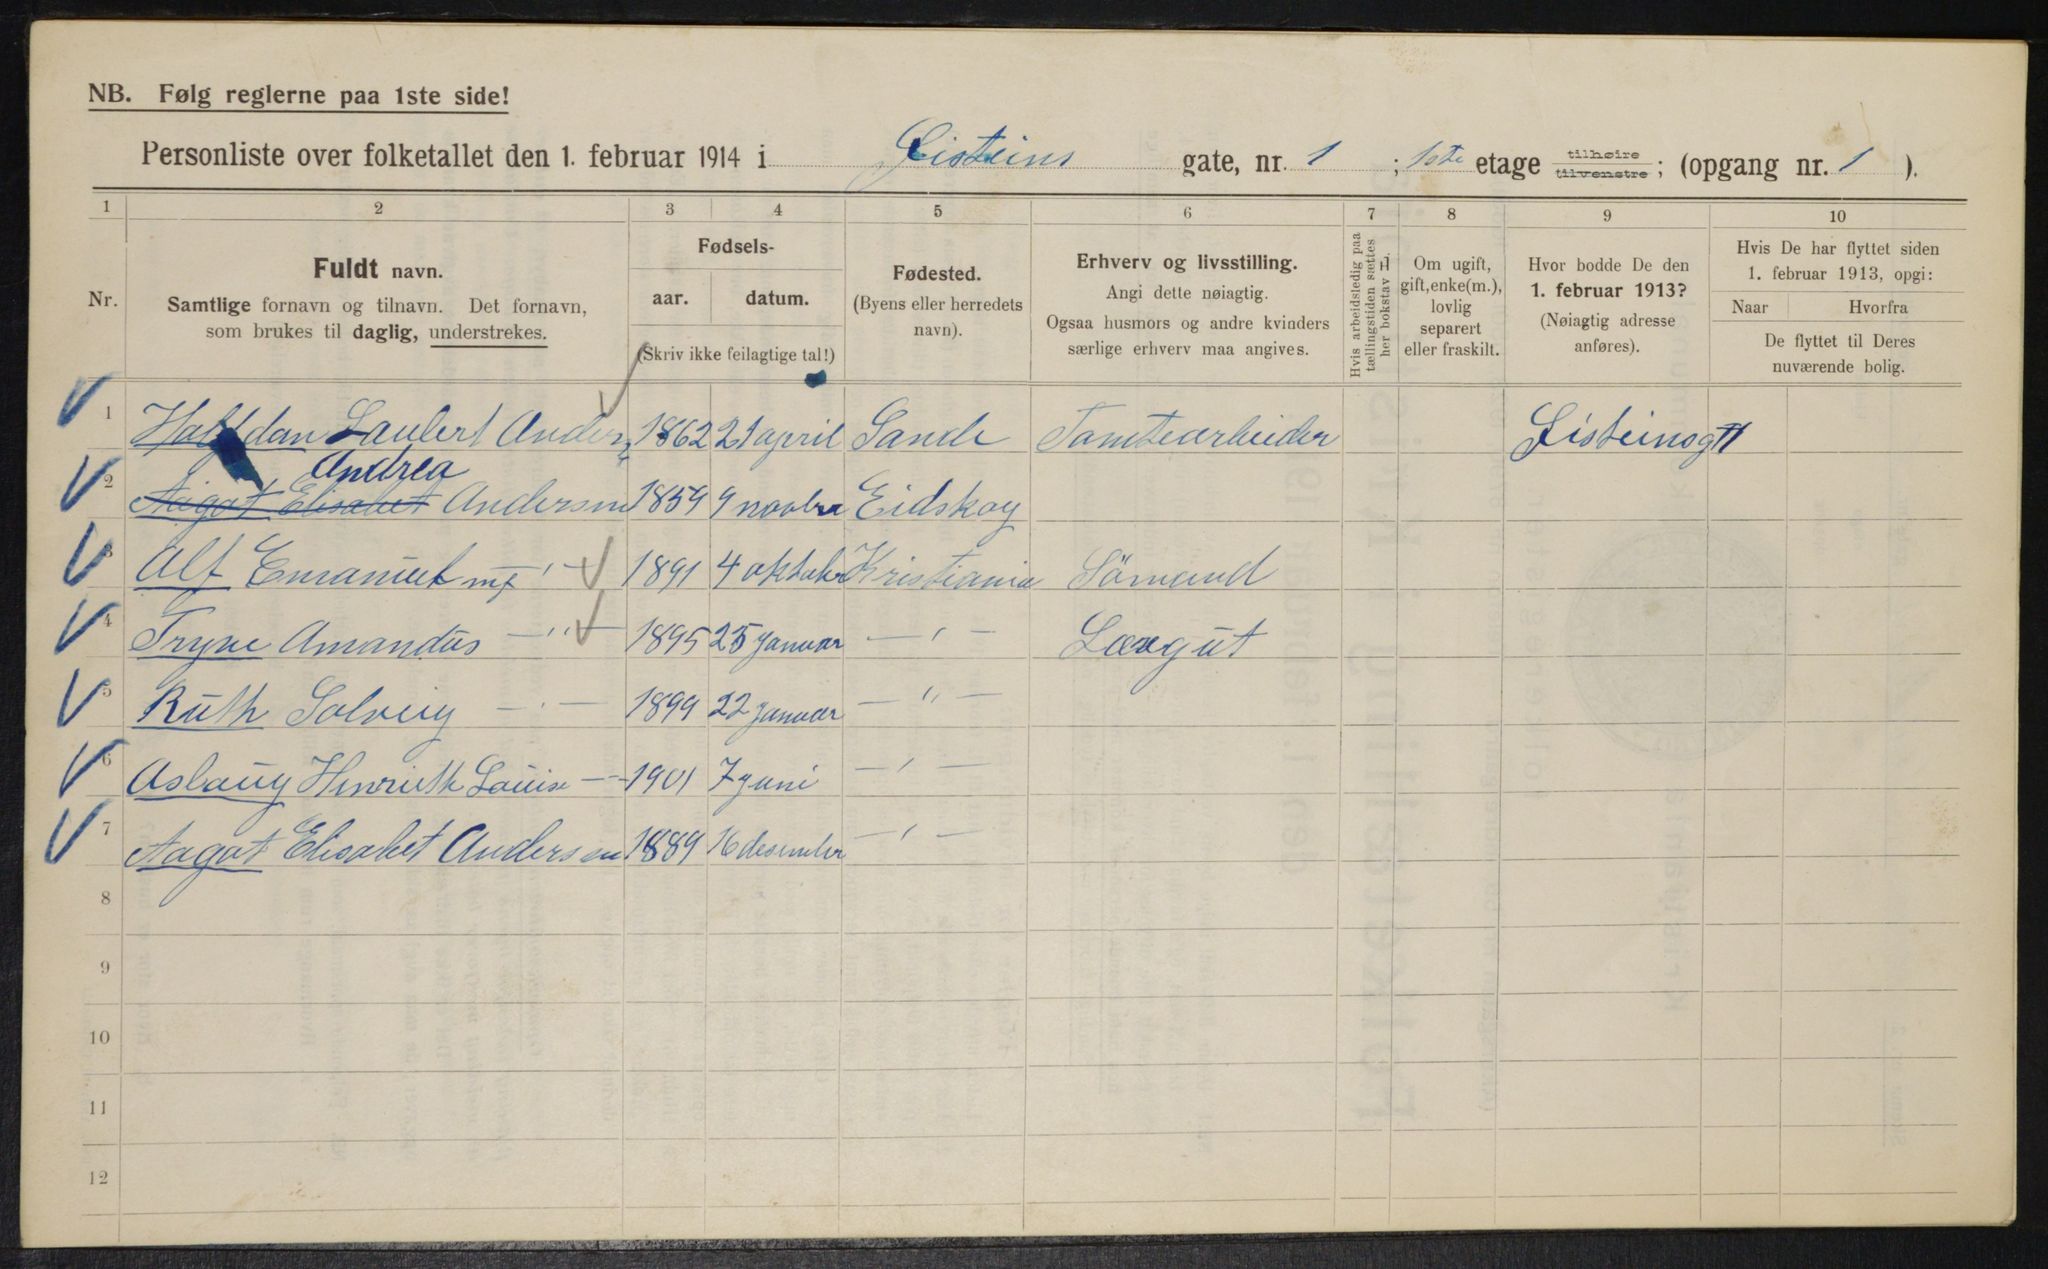 NB. Følg reglerne paa 1ste side!
Personliste over folketallet den 1. februar 1914 i Eisteins gate, nr. 1 ; 1ste etage tilhøire tilvenstre ; (opgang nr. 1 ).
1 2 3 4 5 6 7 8 9 10
Nr.
Fuldt navn.
Samtlige fornavn og tilnavn. Det fornavn,
som brukes til daglig, understrekes.
Fødsels-
aar. datum.
(Skriv ikke feilagtige tal!)
Fødested.
(Byens eller herredets
navn).
Erhverv og livsstilling.
Angi dette nøiagtig.
Ogsaa husmors og andre kvinders
særlige erhverv maa angives.
Hvis arbeidsledig paa
tællingstiden sættes
her bokstav l.
Om ugift,
gift, enke(m.),
lovlig
separert
eller fraskilt.
Hvor bodde De den
1. februar 1913?
(Nøiagtig adresse
anføres).
Hvis De har flyttet siden
1. februar 1913, opgi:
Naar Hvorfra
De flyttet til Deres
nuværende bolig.
1 Halfdan Laubert Anders 1862 21 april Sande Tomtearbeider Eisteinsgt 1
Andrea
2 Aagot Elisabet Andersen 1859 9 novbr Eidskog
3 Alf Emanuel — " — 1891 4 oktober Kristiania Sömand
4 Tryve Amandus — " — 1895 25 januar — " — Læregut
5 Ruth Solveig — " — 1899 22 januar — " —
6 Aslaug Henriette Louise — " — 1901 7 juni — " —
7 Aagot Elisabet Andersen 1889 16 desember — " —
8
9
10
11
12